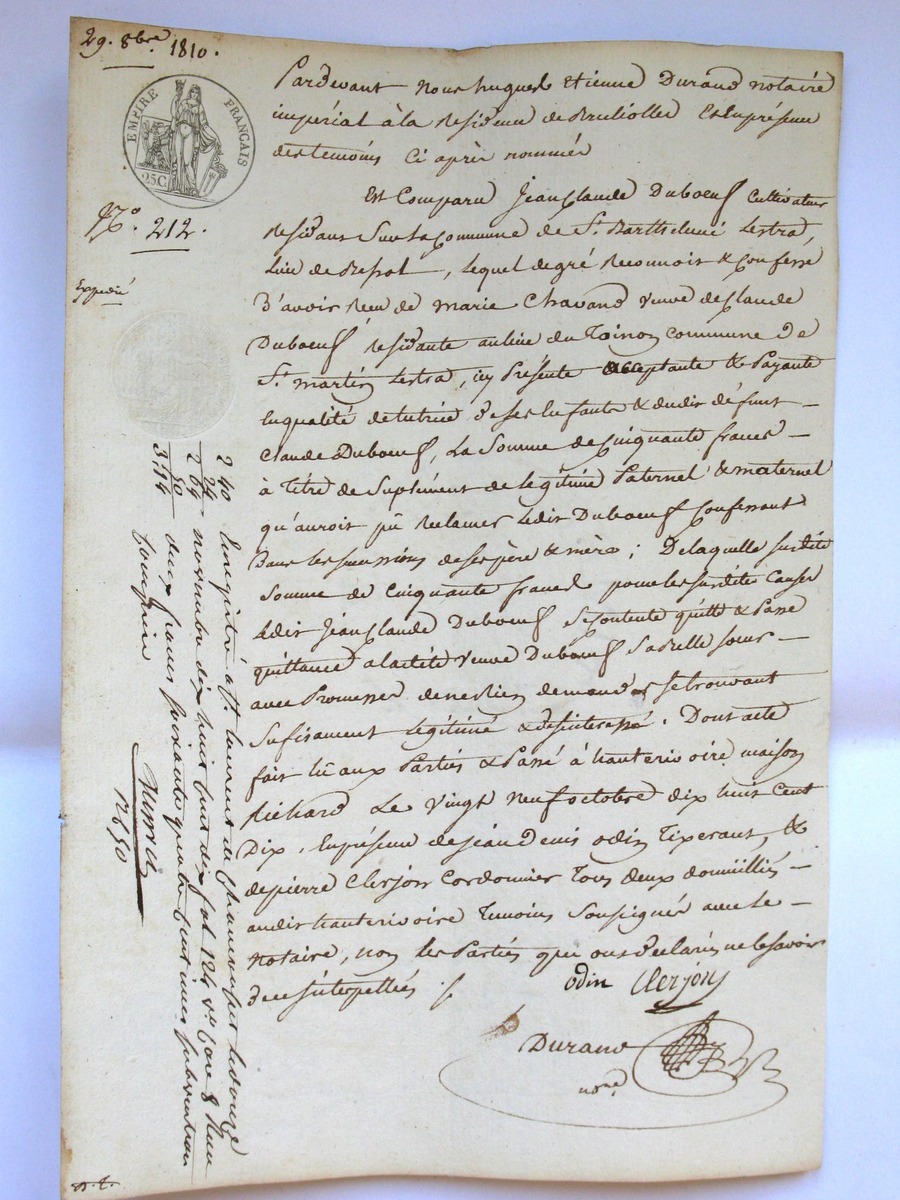 29. 8bre. 1810.
EMPIRE FRANÇAIS
25 C.
N.° 212.
Expedié
Pardevant Nous hugues Etienne Durand notaire
imperial à la Residence de Bruliolles Et en présence
des temoins Ci après nommés
Est Comparu Jean Claude Duboeuf Cultivateur
Residant Sur la Commune de St. Barthelemi Lestra,
Lieu de , Lequel de gré Reconnoit & Confesse
D'avoir Reçu de marie Chavand veuve de Claude
Duboeuf Residante au lieu du Toinon Commune De
St. martin Lestra, icy Présente acceptante & Payante
En qualité de tutrice De ses Enfants & dudit défunt
Claude Duboeuf, La Somme de Cinquante francs
à Titre de Suplément de Légitime Paternel & maternel
qu'auroit pû Reclamer Ledit Duboeuf Confessant
Dans les successions de ses père & mère ; De laquelle susdite
Somme de Cinquante francs pour les susdites Causes
Ledit Jean Claude Duboeuf Se Contente quitte & Passe
quittance a laditte veuve Duboeuf Sa Belle Soeur
avec Promesse de ne Rien demander se trouvant
Sufisament Légitimé & désinteressé. Dont acte
fait lû aux Parties & Passé à hauterivoire maison
Richard Le Vingt Neuf octobre Dix huit Cent
Dix, En présence de Jean Denis odin Tixerant, &
de pierre Clerjon Cordonnier Tous deux domiciliés
audit hauterivoire Temoins Soussignés avec Le
Notaire, non les Parties qui ont Declarés ne le savoir
De ce Interpellées
odin Clerjon
Durand
nore
2 40
24
2 64
50
3.14
Enregistré a St. Laurent de Chamousset le douze
novembre dix huit Cent dix fol 124 vo. Case 8 Recu
deux francs soixante quatre Centimes subvention
Comprise